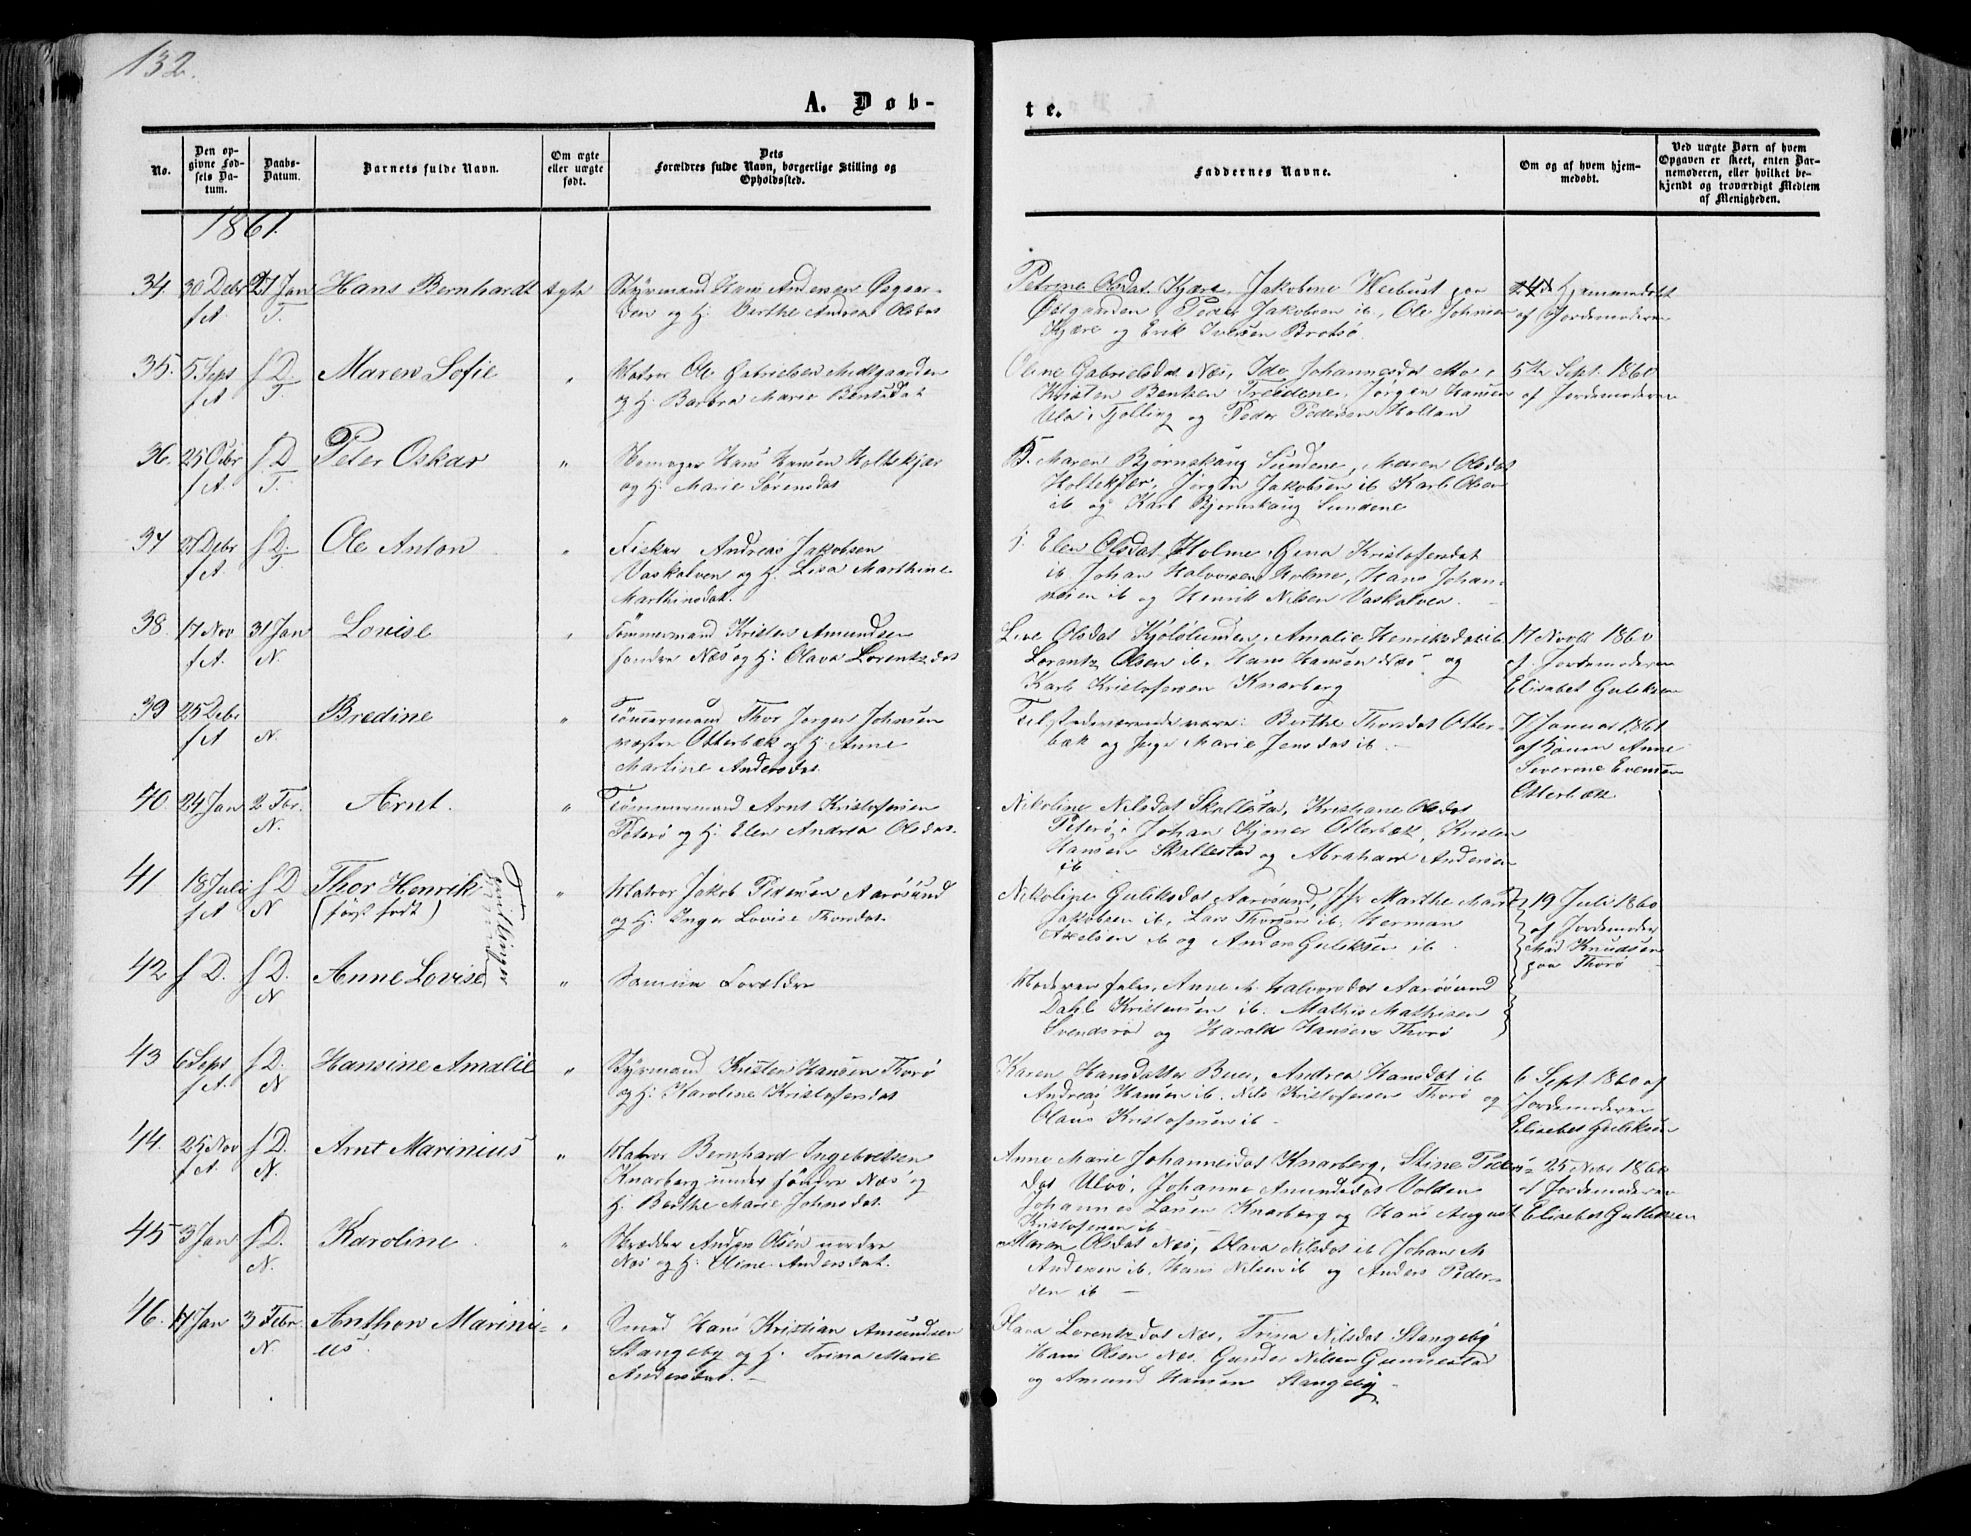 132.
A. Døb-
te.
No.
Den op-
givne Fød-
sels Da-
tum.
Daabs-
Datum.
Barnets fulde Navn.
Om ægte
eller uægte
født.
Dets
Forældres fulde Navn, borgerlige Stilling og
Opholdssted.
Faddernes Navne.
Om og af hvem hjem-
medøbt.
Ved uægte Børn af hvem
Opgaven er skeet, enten Bar-
nemoderen, eller hvilket be-
kjendt og troværdigt Medlem
af Menigheden.
1861.
34. 30 Debr 27 Jan Hans Bernhardt Ægte Styrmand Hans Andersen Østgaar-
f A. T. den og H. Berthe Andrea Olsdat
Petrine Olsdat Kjære, Jakobine Heibust paa
Østgaarden, Peder Jakobsen ib, Ole Johnsen
Kjære og Erik Iversen Brotsø
Hjemmedøbt
af Jordemoderen
35. 5. Sept f D. Maren Sofie " Matros Ole Gabrielsen Medgaarden
f A. T. og H. Barbra Marie Bentsdat
Oline Gabrielsdat Næs, Ida Johannesdat Mo i
Kristen Bentsen Treidene, Jørgen Hansen
Ula i Tjølling og Peder Pedersen Holtan
5te Sept. 1860
af Jordemoderen
36. 25 Octbr f D. Peter Oskar " Skomager Hans Hansen Holtekjær
f A. T. og H. Marie Sørensdat
Maren Bjørnskaug Sundene, Maren Olsdat
Holtekjær, Jørgen Jakobsen ib Karl Olsen
ib og Karl Bjørnskaug Sundene
37 27 Debr f D. Ole Anton " Fisker Andreas Jakobsen
f A. T. Vaskalven og H. Lisa Marthine
Marthinsdat.
Elen Olsdat Holme, Gina Kristofersdat
ib Johan Halvorsen Holme, Hans Johan-
nesen ib og Henrik Nilsen Vaskalven.
38. 17 Nov 31 Jan Lovise " Tømmermand Kristen Amundsen
f A. N. søndre Næs og H. Olava Lorentzdat
Live Olsdat Kjølølunden, Amalie Henriksdat ib
Lorantz Olsen ib, Hans Hansen Næs og
Karl Kristofersen Knarberg
17 Novbr 1860
af Jordemoderen
Elisabet Guliksen
39 25 Debr Bredine " Tømmermand Thor Jørgen Johnsen
f A N. væstre Otterbæk og H. Anne
Martine Andersdat.
Tilstedeværende vare: Berthe Thorsdat Otter-
bæk og Inge Marie Jensdat ib.
7 Januar 1861
af Konen Anne
Severine Evensen
Otterbæk
40. 24 Jan 2 Fbr. Arnt. " Tømmermand Arnt Kristofersen
N. Peterø og H. Elen Andrea Olsdat.
Nikoline Nilsdat Skallestad, Kristiane Olsdat
Peterø, Johan Kjøner Otterbæk, Kristen
Hansen Skallestad og Abraham Andersen
ib
41 18 Juli f D Thor Henrik " Matros Jakob Pedersen Aarøsund
f A N (først født) og H. Inger Lovise Thorsdat.
Tvillinger
Nikoline Guliksdat Aarøsund, Jfr Marthe Marie
Jakobsen ib, Lars Thorsen ib, Herman
Axelsen ib og Anders Guliksen ib
19 Juli 1860
af Jordemoder
Mad Knudsen
paa Thorø
42 f D. f D. Anne Lovise " Samme Forældre
N
Moderen selv, Anne M. Halvorsdat Aarøsund
Dahl Kristensen ib. Mathis Mathisen
Svendsrød og Harald Hansen Thorø
43 6 Sept f D. Hansine Amalie " Styrmand Kristen Hansen Thorø
f A. N og H. Karoline Kristofersdat
Karen Hansdatter Buer, Andrea Hansdat ib
Andreas Hansen ib. Nils Kristofersen Thorø og
Olaus Kristofersen ib.
6 Sept. 1860 af
Jordemoderen
Elisabet Guliksen
44. 25 Nov f D. Arnt Marinius " Matros Bernhard Ingebretsen
f A. N. Knarberg under søndre Næs og
H. Berthe Marie Johnsdat.
Anne Marie Johannesdat Knarberg, Stine Peders-
dat Ulvø, Johanne Amundsdat Volden
Johannes Larsen Knarberg og Hans August
Kristofersen ib
25 Nobr 1860
af Jordemoderen
Elisabet Gulliksen
45 3 Jan f D. Karoline " Skrædder Anders Olsen nordre
N. Næs og H. Oline Andersdat.
Maren Olsdat Næs, Olava Nilsdat ib Johan M
Andersen ib, Hans Nilsen ib og Anders Peder-
sen ib
46. 17 Jan 3 Febr. Anthon Marini- " Smed Hans Kristian Amundsen
N us. Stangeby og H. Trina Marie
Andersdat.
Olava Lorentzdat Næs, Trina Nilsdat Stangeby
Hans Olsen Næs. Gunder Nilsen Gunnestad
og Amund Hansen Stangeby